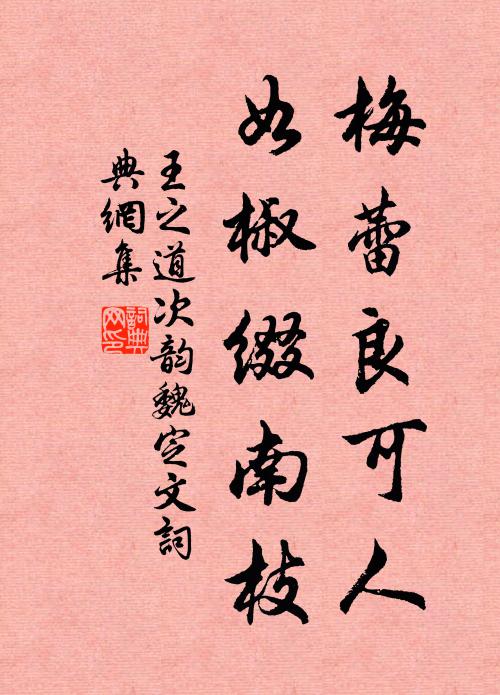 梅蕾良可人
如椒缀南枝
王之道次韵魏定文词
典網集
詞典网印